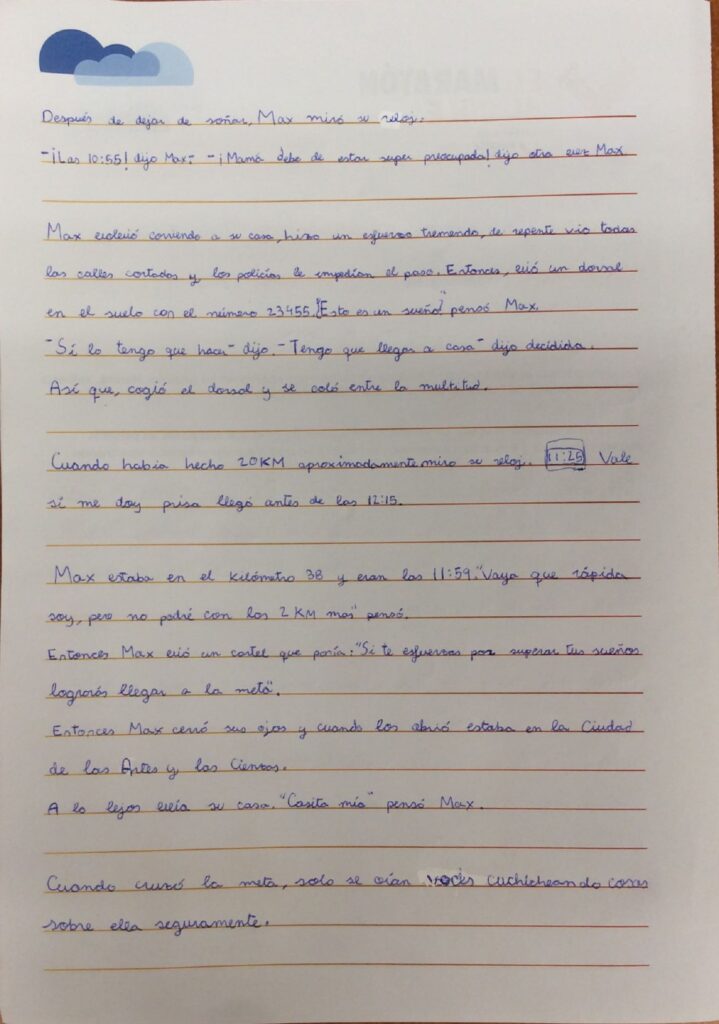 Después de dejar de soñar, Max miró su reloj.
-¡Las 10:55! dijo Max- -¡Mamá debe de estar super preocupada! dijo otra vez Max.
Max volvió corriendo a su casa, hizo un esfuerzo tremendo, de repente vio todas
las calles cortadas y los policías le impedían el paso. Entonces, vió un dorsal
en el suelo con el número 23455. "Esto es un sueño" pensó Max.
-Sí lo tengo que hacer- dijo. -Tengo que llegar a casa- dijo decidida.
Así que, cogió el dorsal y se coló entre la multitud.
Cuando había hecho 20KM aproximadamente miro su reloj.. 11:25 Vale
si me doy prisa llegó antes de las 12:15.
Max estaba en el kilómetro 38 y eran las 11:59. "Vaya que rápida
soy, pero no podré con los 2 KM mas" pensó.
Entonces Max vió un cartel que ponía: "Si te esfuerzas por superar tus sueños
lograrás llegar a la meta".
Entonces Max cerró sus ojos y cuando los abrió estaba en la Ciudad
de las Artes y las Ciencias.
A lo lejos veía su casa. "Casita mía" pensó Max.
Cuando cruzó la meta, solo se oían voces cuchicheando cosas
sobre ella seguramente.